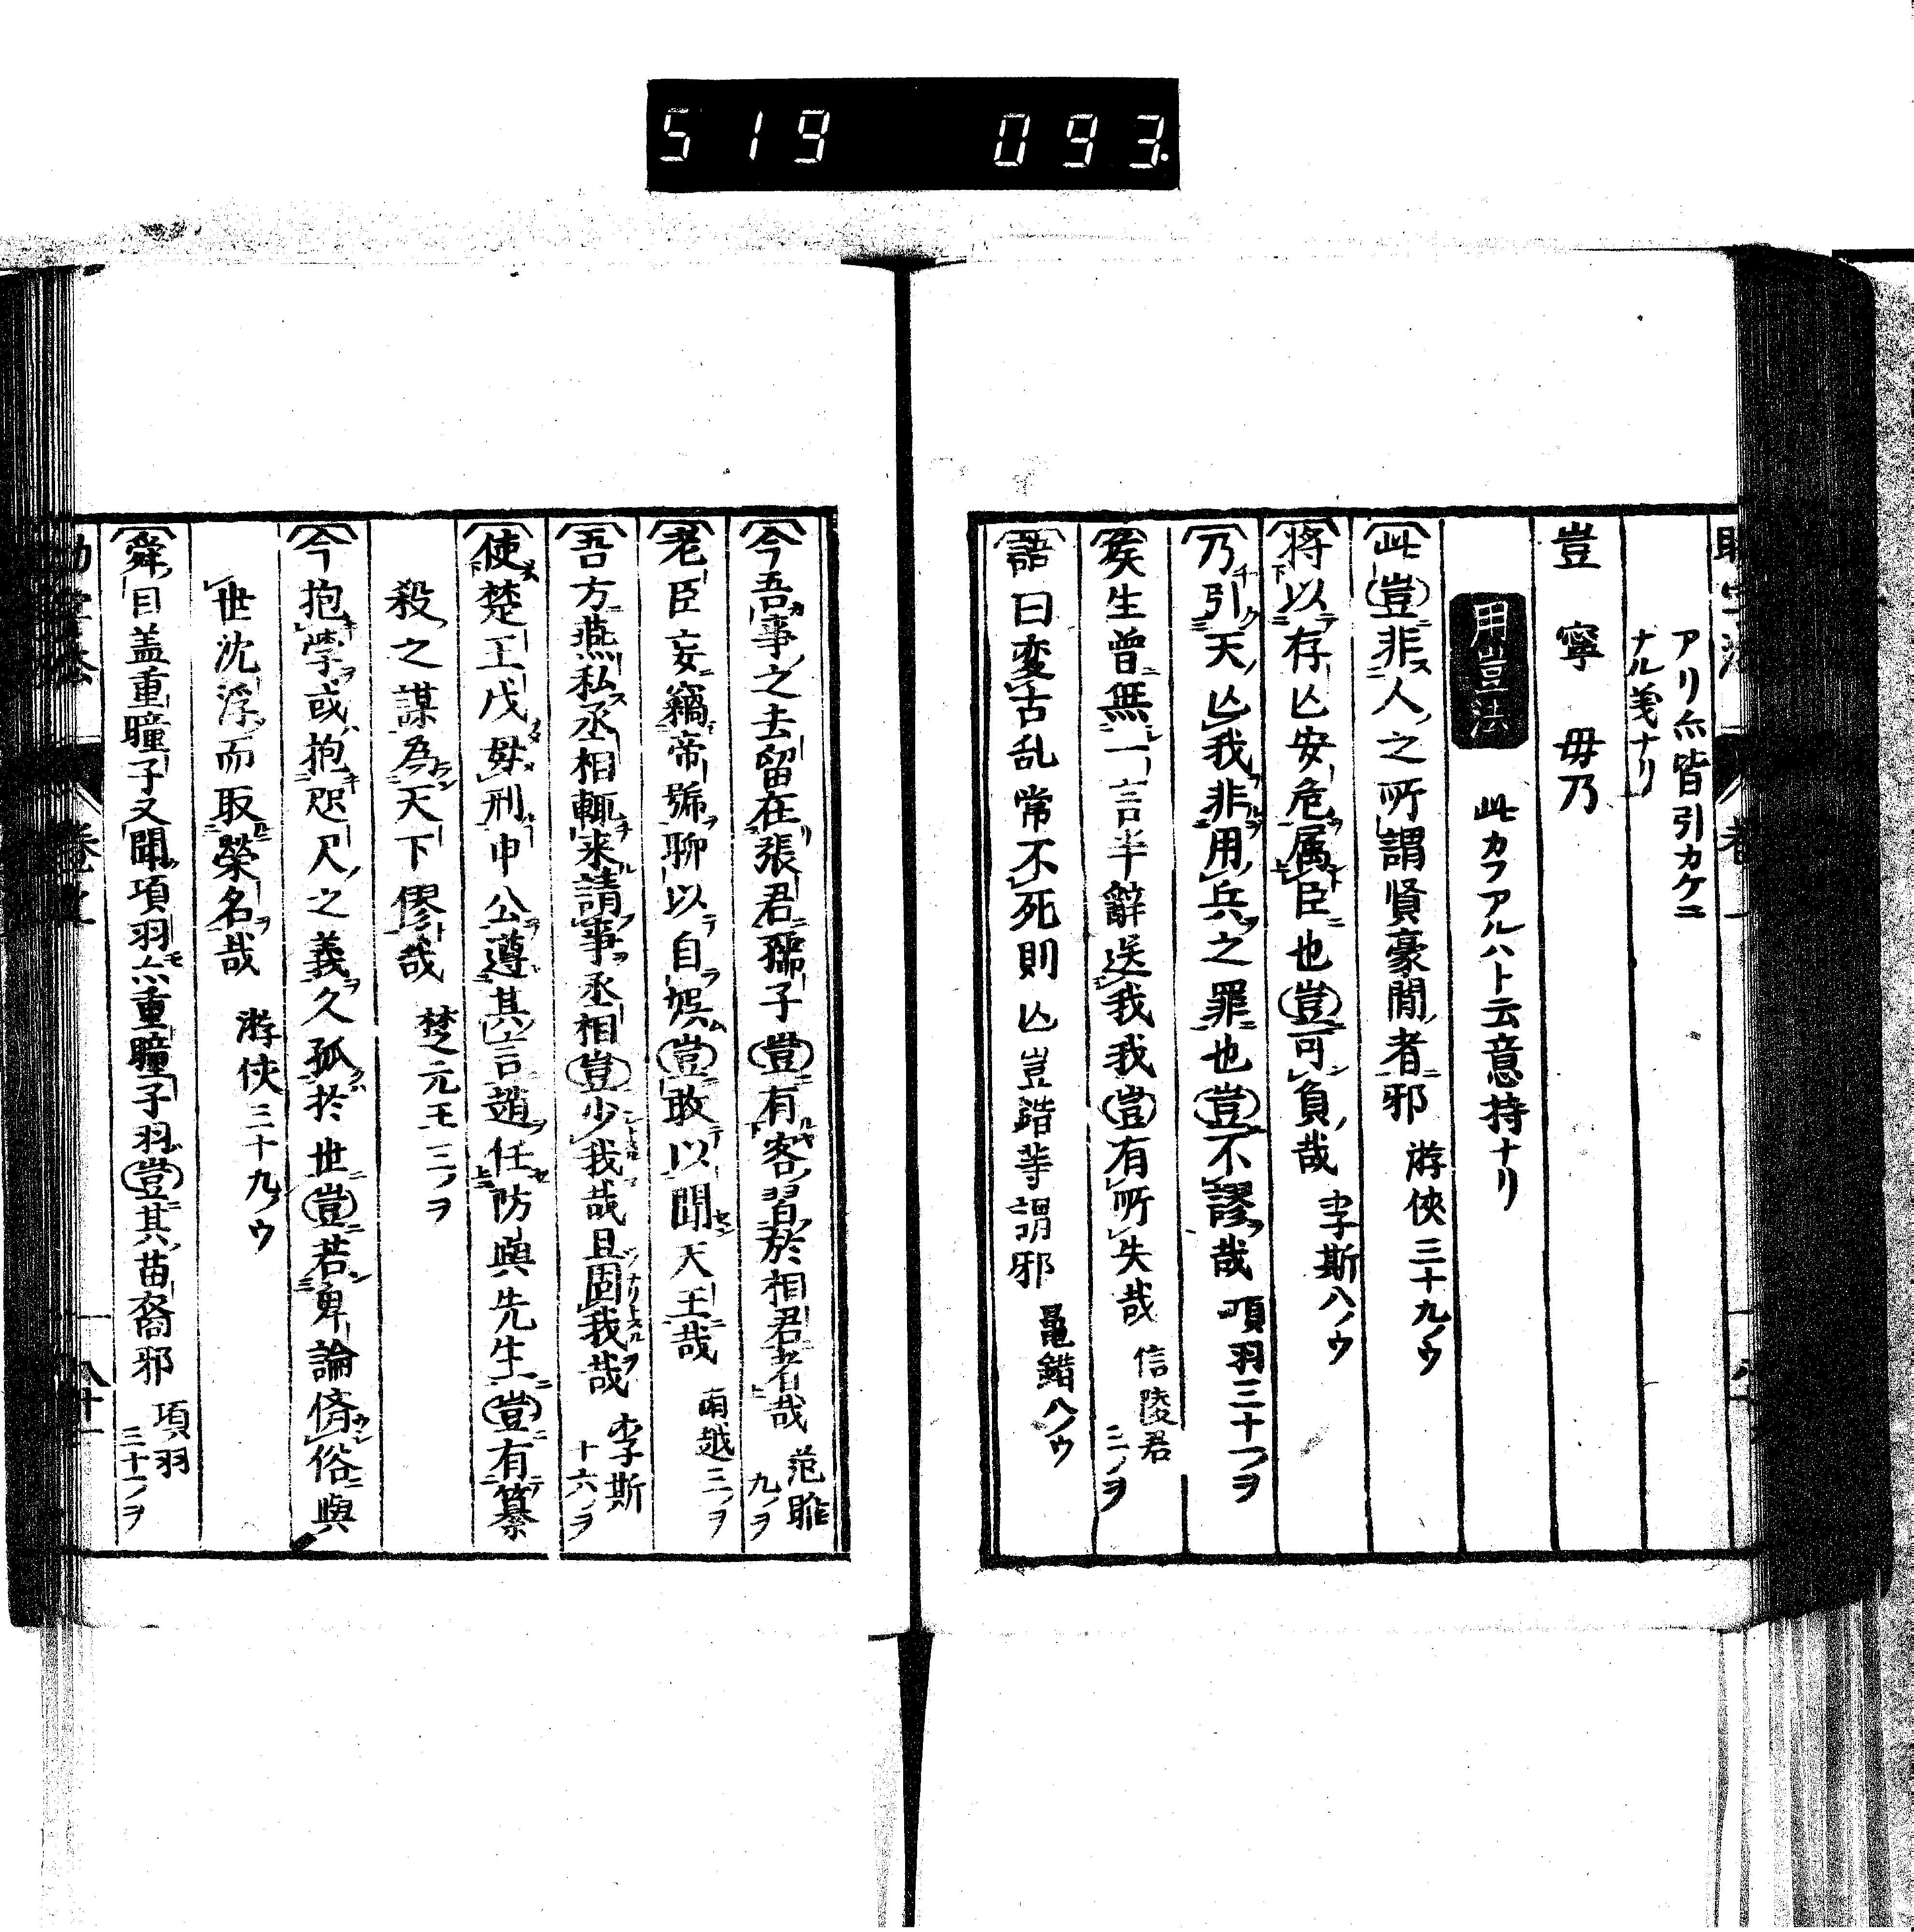 519 093.
アリ亦皆引カケニ
ナル義ナリ
豈 寧 毋乃
用豈法 此カフアルハト云意持ナリ
此豈非人之所謂賢豪間者邪 游俠三十九ノウ
将以存亾安危属臣也豈可負哉 李斯八ノウ
乃引天亾我非用兵之罪也豈不謬哉 項羽三十一ノヲ
矦生曾無一言半辭送我我豈有所失哉 信陵君三ノヲ
語曰変古乱常不死則亾豈錯等謂邪 鼂錯八ノウ
今吾事之去留在張君孺子豈有客習於相君者哉 范雎九ノヲ
老臣妄竊帝號聊以自娯豈敢以聞天王哉 南越三ノヲ
吾方燕私丞相輒来請事丞相豈少我哉且固我哉 李斯十六ノヲ
使楚王戊毋刑申公遵其言趙任防與先生豈有簒
殺之謀為天下僇哉 楚元王三ノヲ
今拘学或抱咫尺之義久孤於世豈若卑論儕俗與
世沈浮而取榮名哉 游俠三十九ノウ
舜目盖重瞳子又聞項羽亦重瞳子羽豈其苗裔邪 項羽三十一ノヲ